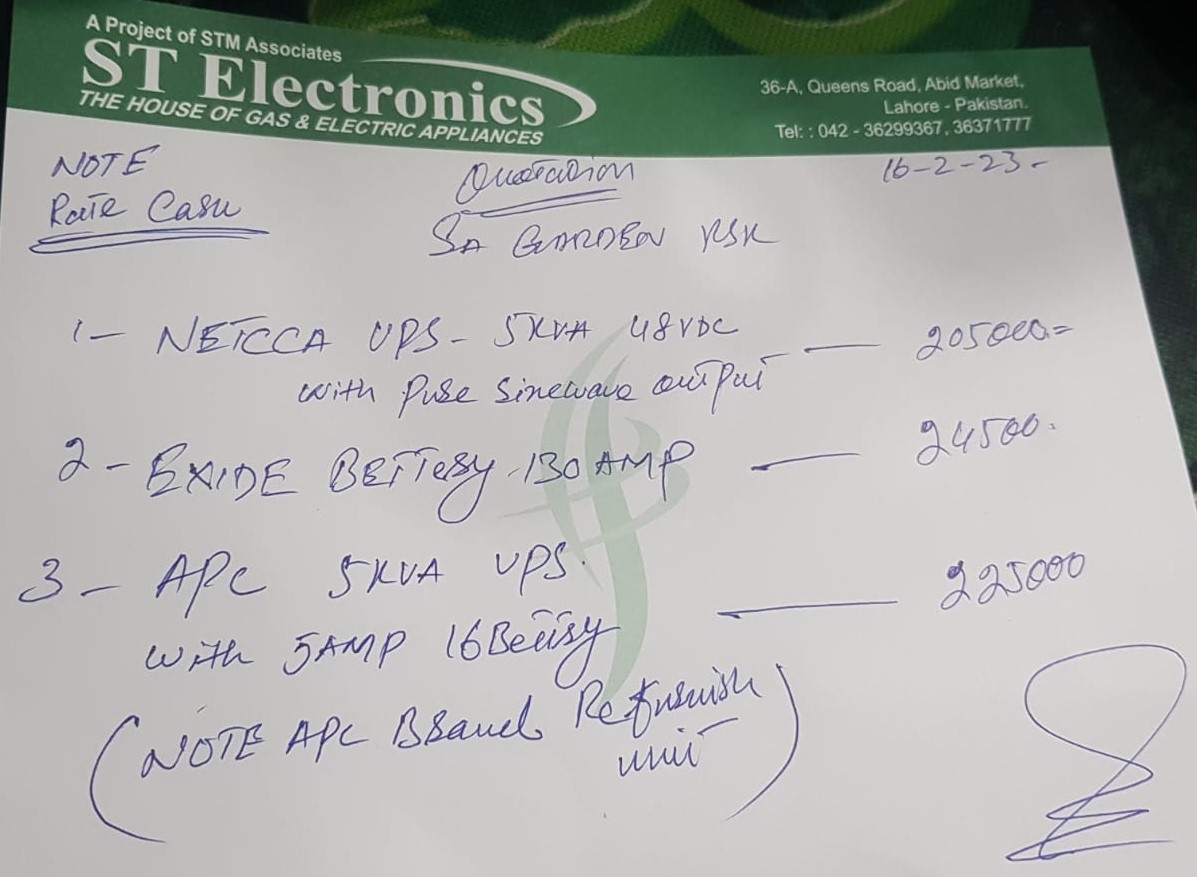 A Project of STM Associates
ST Electronics
THE HOUSE OF GAS & ELECTRIC APPLIANCES
36-A, Queens Road, Abid Market,
Lahore - Pakistan.
Tel: : 042 - 36299367, 36371777
NOTE
Rate Cash
Quotation
16-2-23-
SA GARDEN KSK
1- NETCCA UPS - 5KVA 48VDC — 205000=
with Puse Sinewave output
2 - EXIDE BETTery 130 AMP — 24500.
3 - APC 5KVA UPS. — 225000
with 5AMP 16 Bettry
(NOTE APC Brand Refurnish
unit)